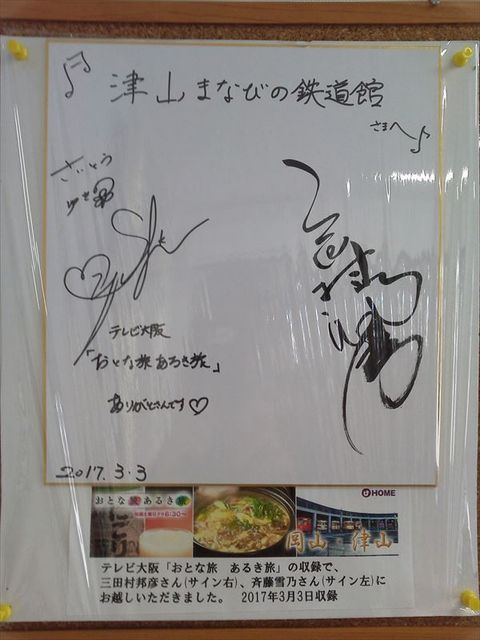 津山まなびの鉄道館
さまへ♪
さいとう
ゆき
テレビ大阪
「おとな旅あるき旅」
ありがとさんです♡
2017.3.3
おとな旅あるき旅
毎週土曜日夕方6:30～
HOME
岡山・津山
テレビ大阪「おとな旅　あるき旅」の収録で、
三田村邦彦さん(サイン右)、斉藤雪乃さん(サイン左)に
お越しいただきました。　2017年3月3日収録